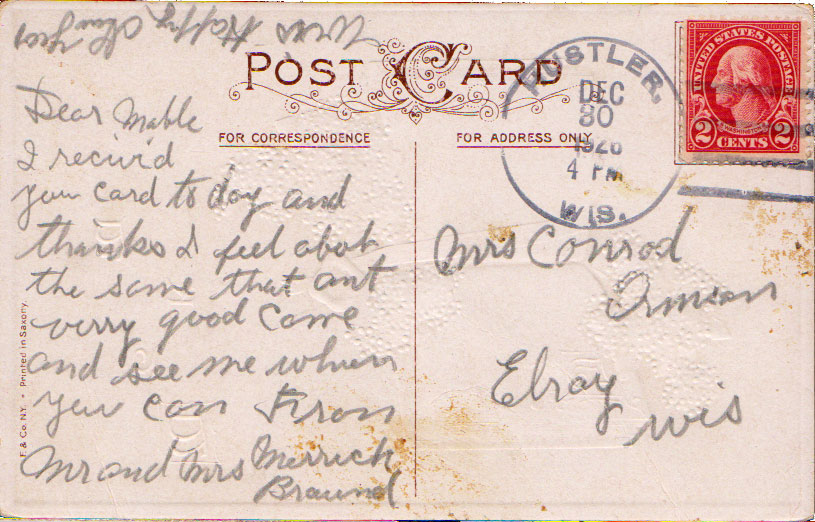 Wiss Happy New Year
POST CARD
FOR CORRESPONDENCE
FOR ADDRESS ONLY
HUSTLER.
DEC
30
1926
4 PM
WIS.
UNITED STATES POSTAGE
WASHINGTON
2 CENTS 2
Dear Mable
I recivid
your card to day and
thanks I feel abot
the same that ant
verry good Come
and see me when
you can From
Mr and Mrs Merrick
Braund
Mrs Conrod
Ormson
Elroy
Wis
F. & Co. N.Y. • Printed in Saxony.